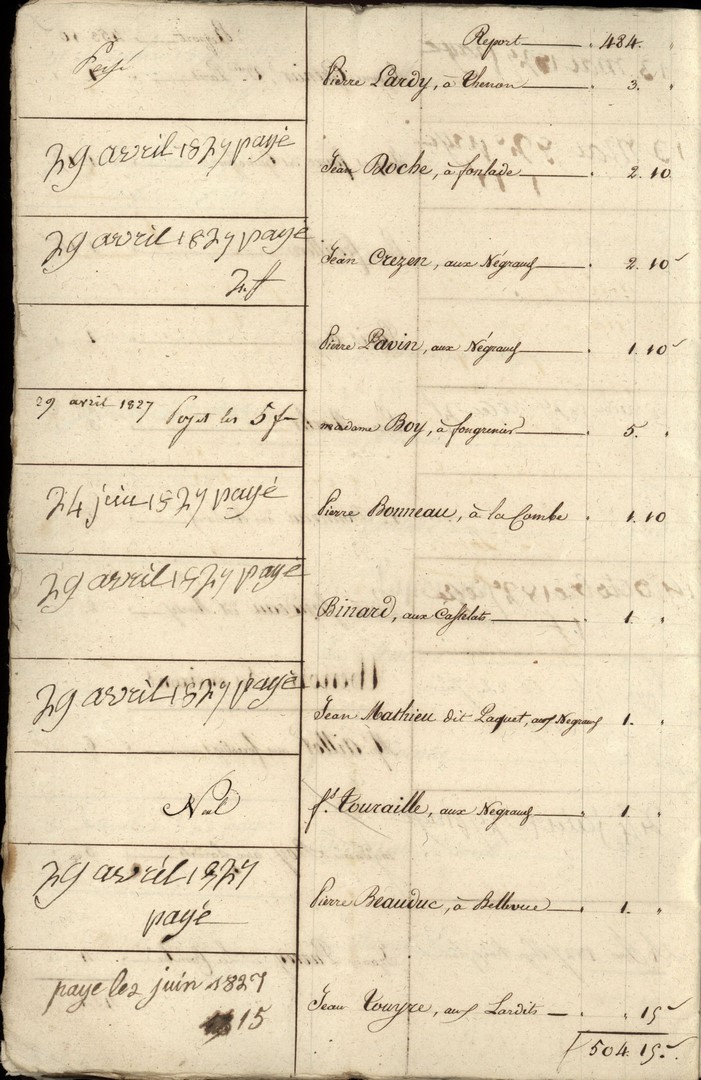 Report 484.
Payé
Pierre Lardy, à Thenon 3.
29 avril 1827 payé
Jean Roche, à fonlade 2. 10
29 avril 1827 payé
2 f
Jean Crezen, aux Négrauf 2. 10
Pierre Pavin, aux Négrauf 1. 10
29 avril 1827 Payet les 5 f
madame Boy, à fongrenier 5.
24 juin 1827 payé
Pierre Bonneau, à la Combe 1. 10
29 avril 1827 payé
Binard, aux Castelats 1.
29 avril 1827 payé
Jean Mathieu dit Paquet, aux Negrauf 1.
Nul
fs. Touraille, aux Negrauf 1.
29 avril 1827
payé
Pierre Beauduc, à Bellevue 1.
paye le 2 juin 1827
15
Jean Touyre, aux Lardits 15
504. 15